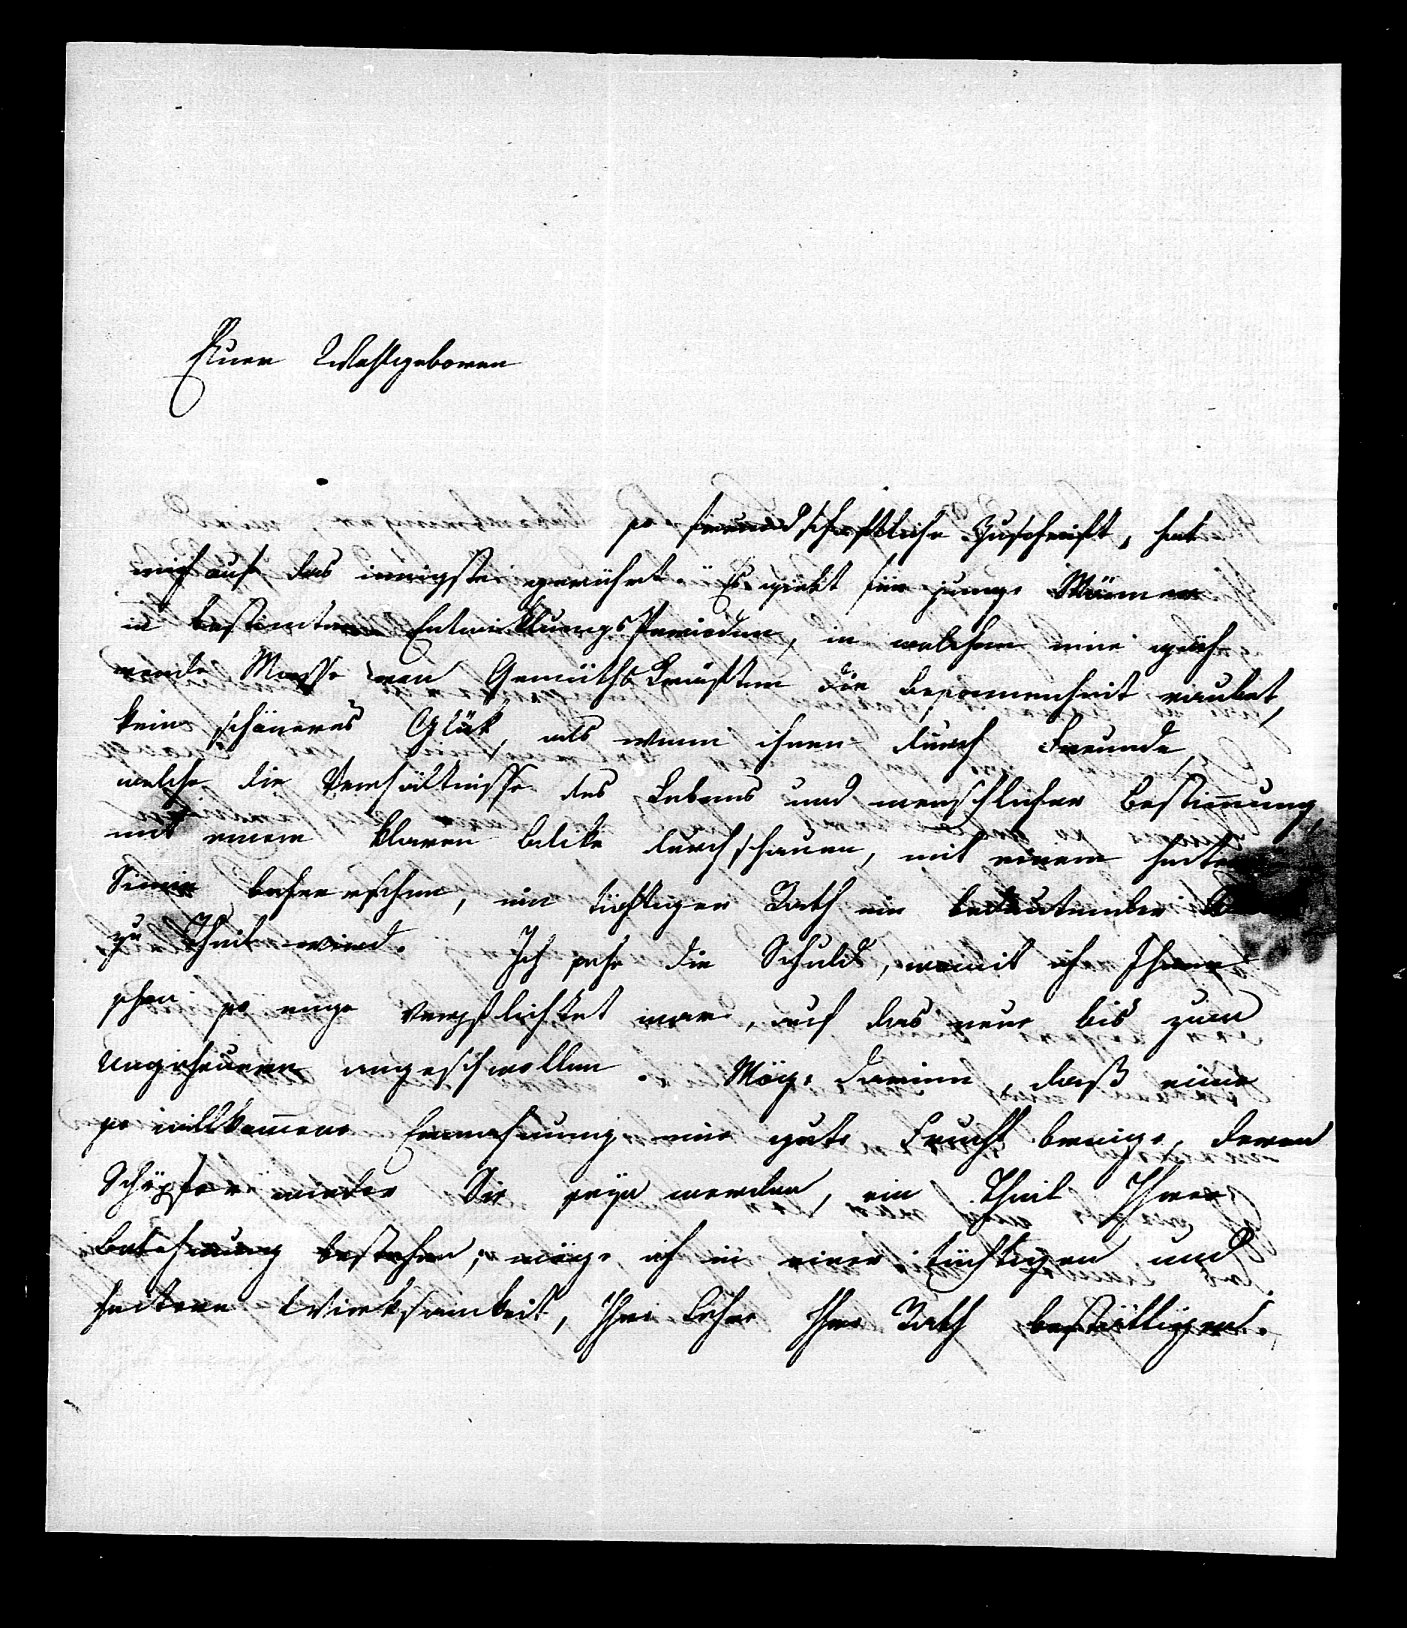 Euer Wohlgeboren
so freundschaftliche Zuschrift, hat
mich auf das innigste gerührt. Es giebt für junge Männer
in bestimten Entwicklungs Perioden, in welchen eine gäh-
rende Masse von Gemüthskräften die Besonnenheit raubet,
kein schöneres Glük, als wenn ihnen durch Freunde,
welche die Verhältnisse des Lebens und menschlicher Bestimung,
mit einem klaren Blicke durchschauen, mit einem heitern
Sinne beherrschen, ein tüchtiger Rath ein bedeutender
zu Theil wird. Ich sehe die Schuld, womit ich Ihnen
schon so enge verpflichtet war, auf das neue bis zum
Ungeheuern angeschwollen. Möge darinn, daß eine
so willkomene Ermahnung eine gute Frucht bringe, deren
Schöpfer wieder Sie seyn werden, ein Theil Ihrer
Belohnung bestehen; möge ich in einer tüchtigen und
heitern Wirksamkeit, Ihre Lehre Ihren Rath bestättigen.